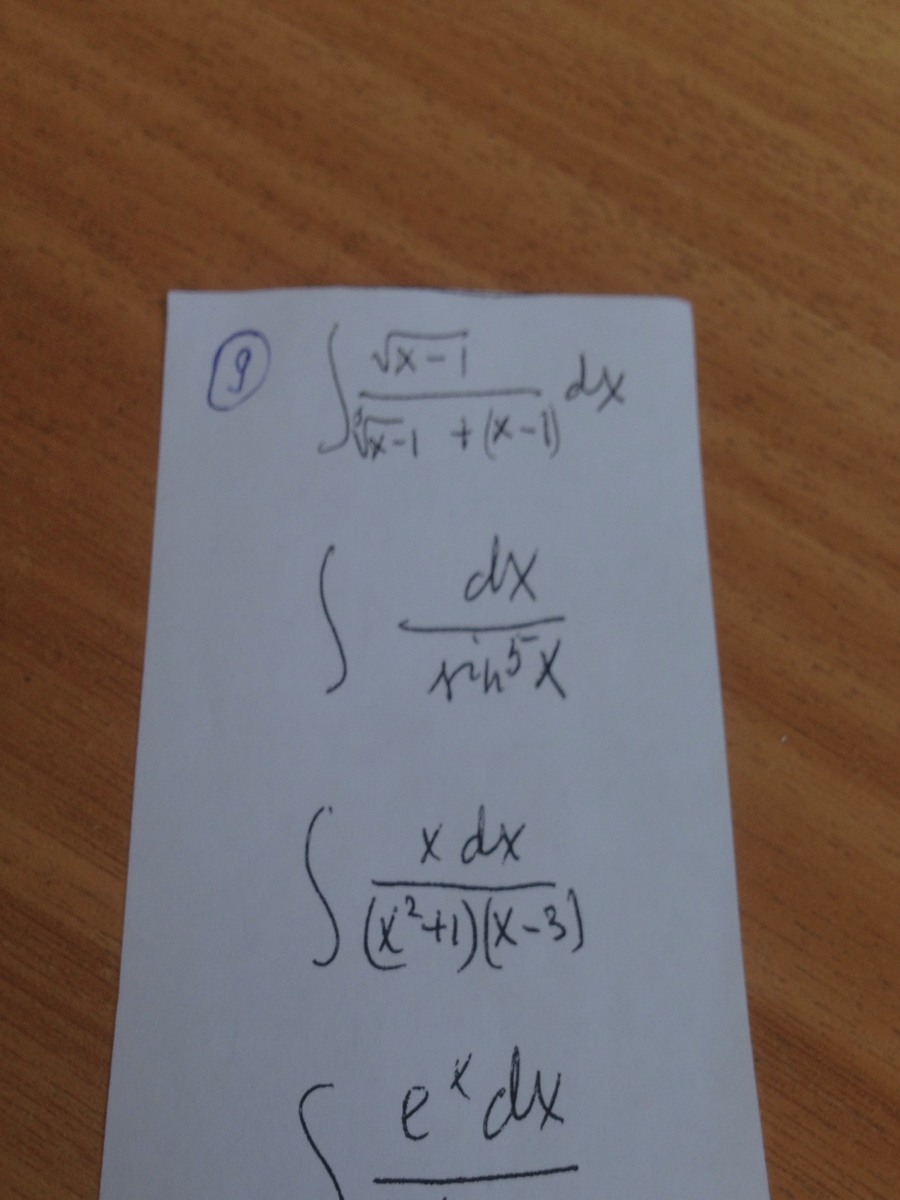 9 ∫ √(x-1) / (∛(x-1) + (x-1)) dx
∫ dx / sin⁵x
∫ x dx / ((x²+1)(x-3))
∫ eˣ dx